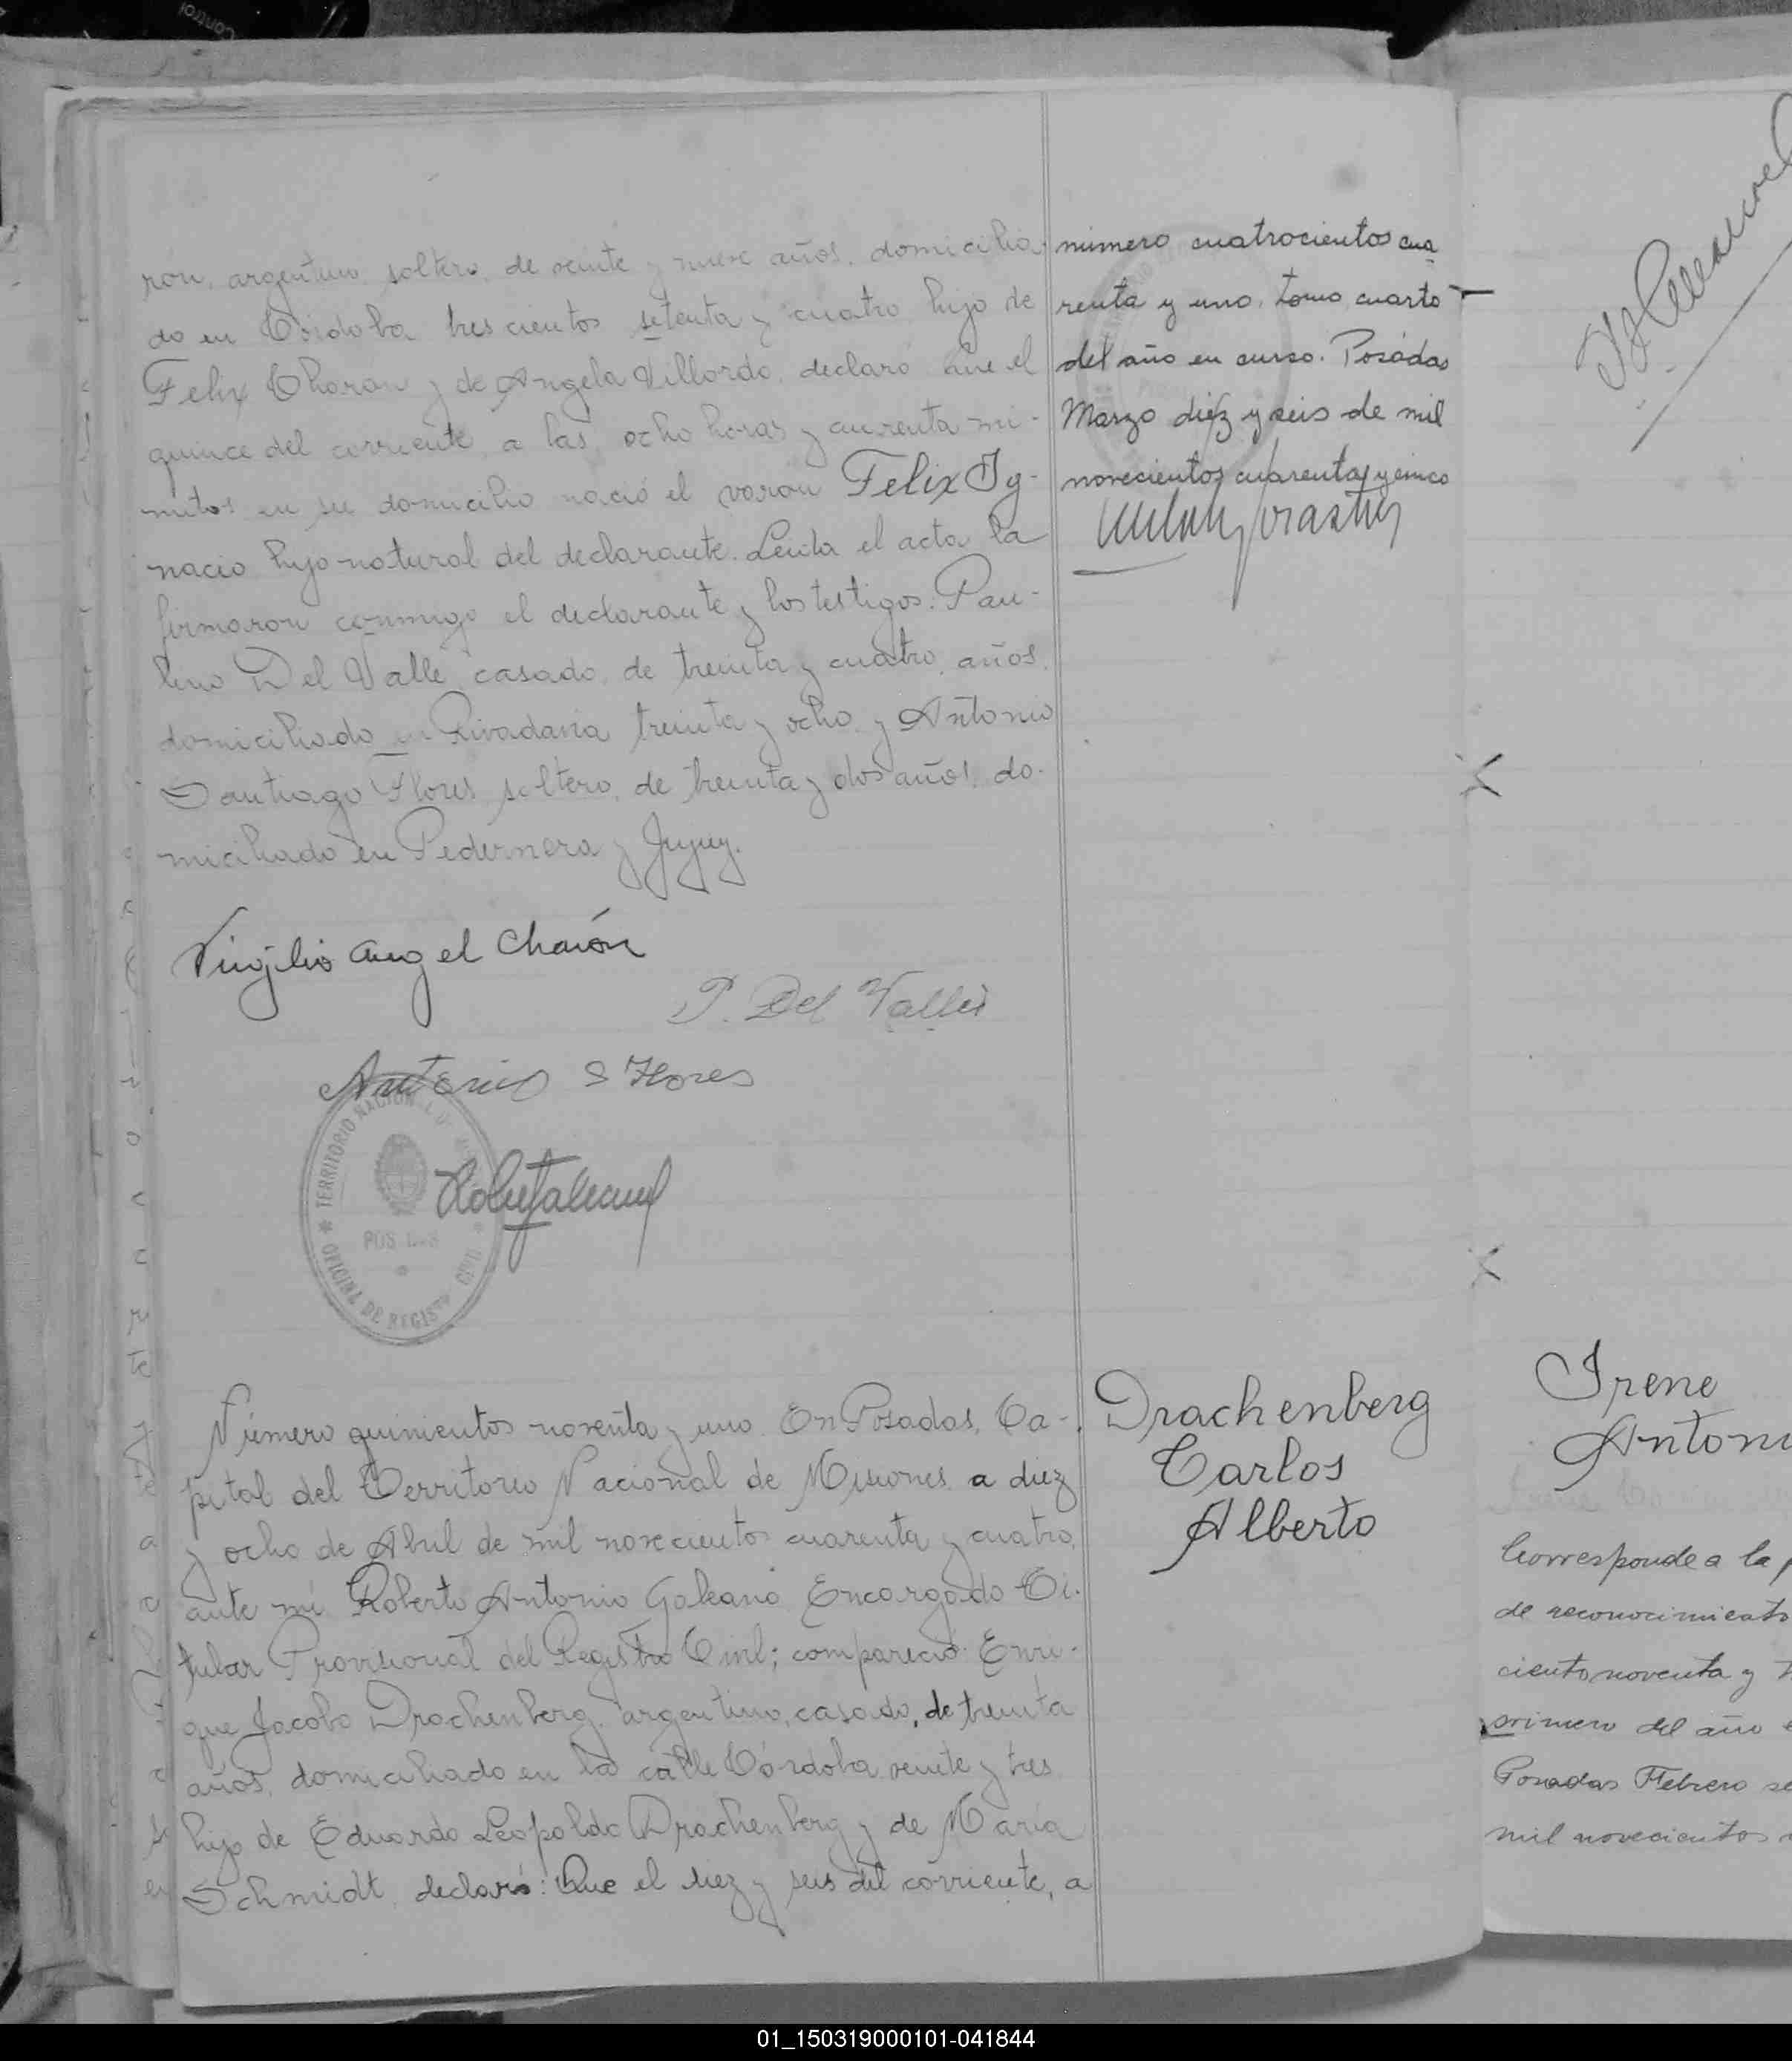 ron, argentino, soltero, de veinte y nueve años, domicilia-
do en Córdoba trescientos setenta y cuatro hijo de
Felix Charon y de Angela Villordo, declaró: Que el
quince del corriente, a las ocho horas y cuarenta mi-
nutos en su domicilio nació el varon Felix Yg-
nacio hijo natural del declarante. Leida el acta la
firmaron conmigo el declarante y los testigos: Pau-
lino Del Valle, casado, de treinta y cuatro, años,
domiciliado en Rivadavia treinta y ocho, y Antonio
Santiago Flores, soltero, de treinta y dos años, do-
miciliado en Pedernera y Jujuy.
Virgilio Angel Charón
P. Del Valle
Antonio S Flores
TERRITORIO NACIONAL
POSADAS
OFICINA DE REGISTRO CIVIL
número cuatrocientos cua
renta y uno, tomo cuarto
del año en curso. Posadas
Marzo diez y seis de mil
novecientos cuarenta y cinco
Número quinientos noventa y uno. En Posadas, Ca-
pital del Territorio Nacional de Misiones, a diez
y ocho de Abril de mil novecientos cuarenta y cuatro,
ante mi Roberto Antonio Galeano Encargado Ti-
tular Provisional del Registro Civil; compareció Enri-
que Jacobo Drachenberg, argentino, casado, de treinta
años, domiciliado en la calle Córdoba veinte y tres
hijo de Eduardo Leopoldo Drachenberg y de María
Schmidt, declaró: Que el diez y seis del corriente, a
Drachenberg
Carlos
Alberto
Irene
Antoni
Corresponde a la
de reconocimiento
ciento noventa y
primero del año
Posadas Febrero
mil novecientos
01_150319000101-041844